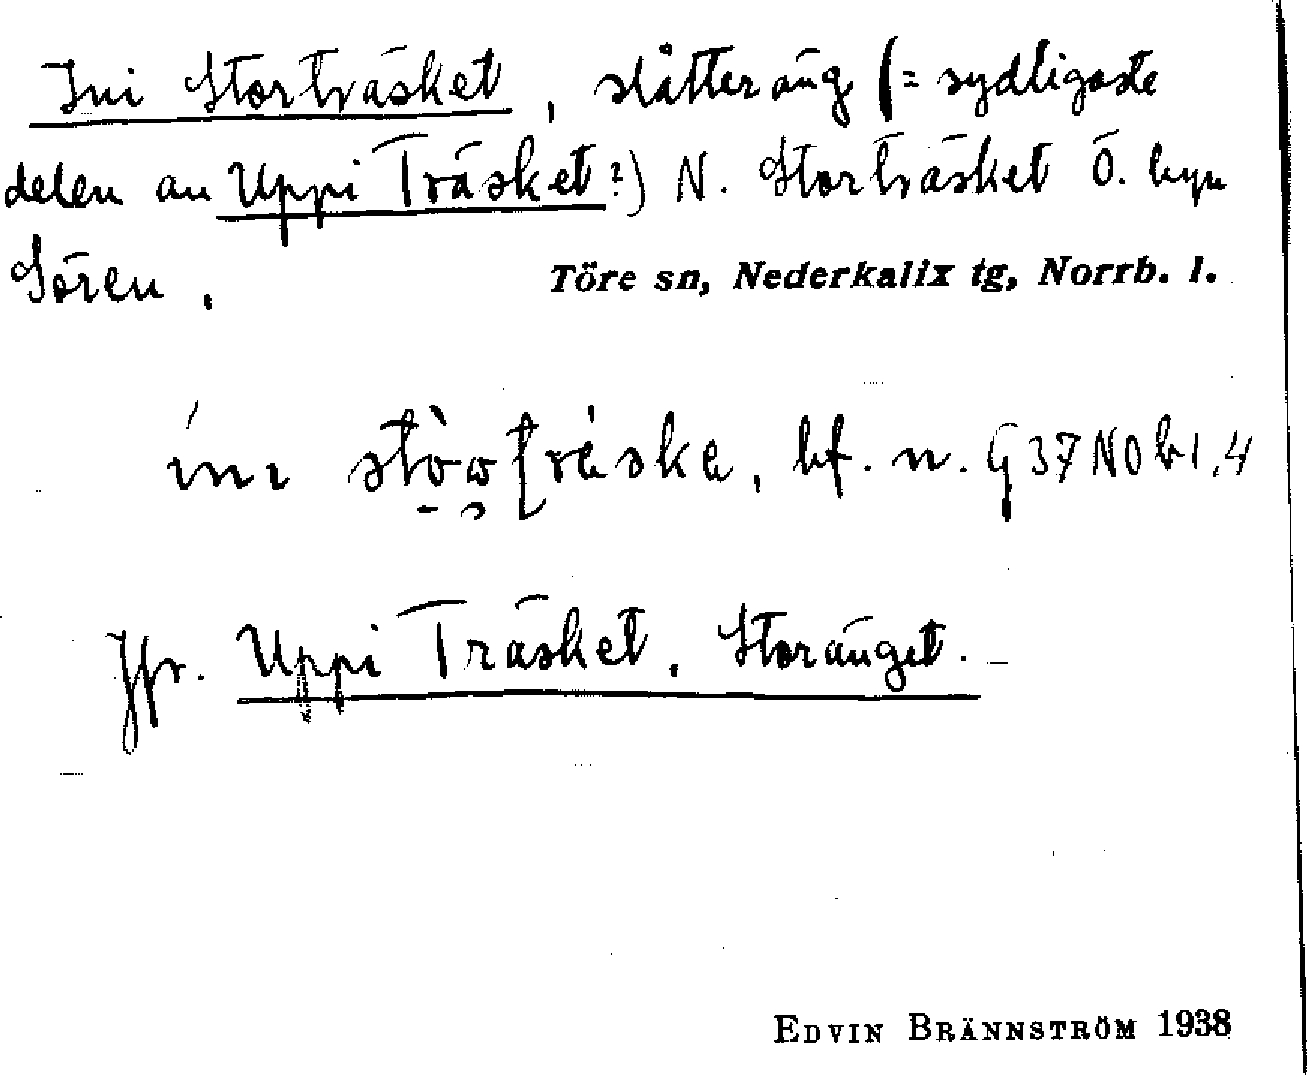 Ini Storträsket, slåtteräng (= sydligaste
delen av Uppi Träsket?) N. Storträsket Ö. byn
Sören.
Töre sn, Nederkalix tg, Norrb. l.
bf. n. G 37 NO b 1,4
Jfr. Uppi Träsket, Storänget.
EDVIN BRÄNNSTRÖM 1938